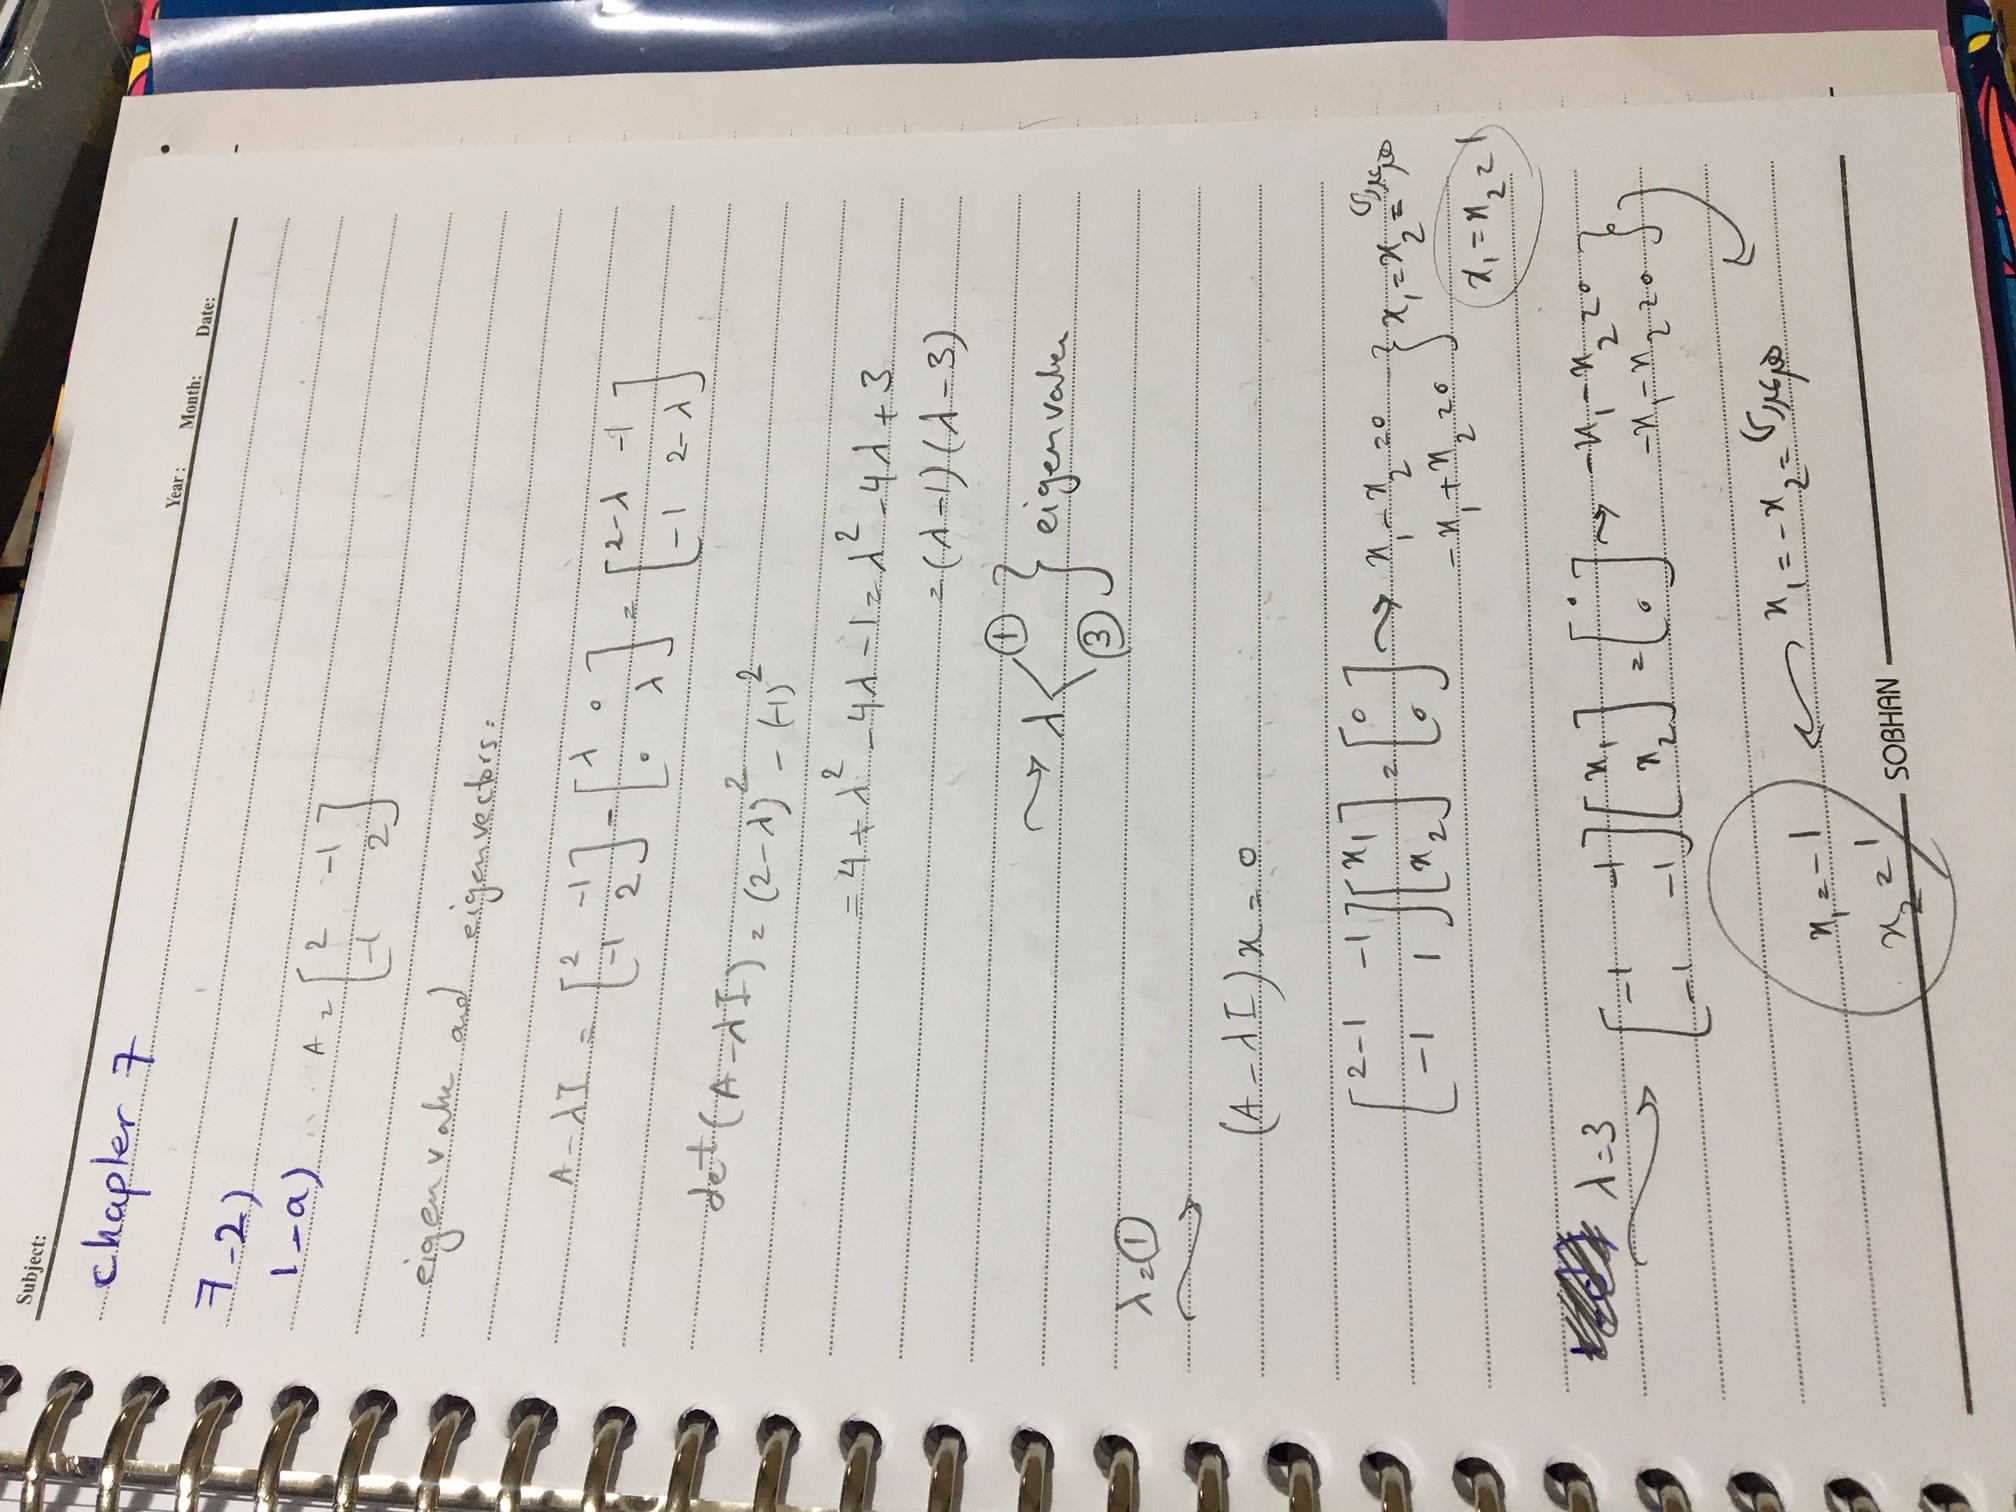 Subject:
Year: Month: Date:
chapter 7
7-2)
1-a) A = [2 -1
-1 2]
eigenvalue and eigenvectors:
A-λI = [2 -1
-1 2] - [λ 0
0 λ] = [2-λ -1
-1 2-λ]
det(A-λI) = (2-λ)² - (-1)²
= 4+λ²-4λ-1 = λ²-4λ+3
= (λ-1)(λ-3)
→ λ < ① ③ } eigenvalue
λ=①
(A-λI)x = 0
[2-1 -1
-1 1] [x₁
x₂] = [0
0] → x₁-x₂=0
-x₁+x₂=0 } x₁=x₂=هرعددی
x₁=x₂=1
λ=3 → [-1 -1
-1 -1] [x₁
x₂] = [0
0] → -x₁-x₂=0
-x₁-x₂=0 }
x₁=-x₂=هرعددی
x₁=-1
x₂=1
SOBHAN